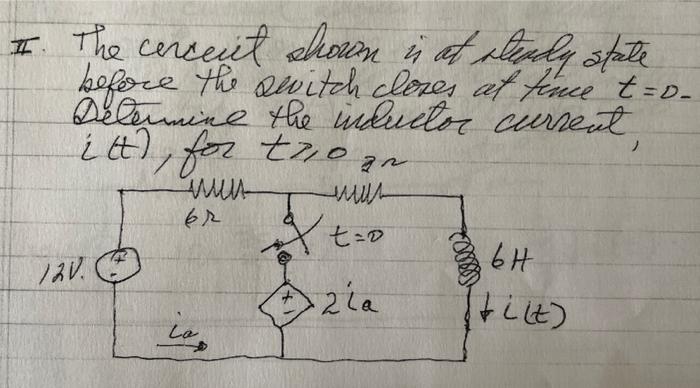 II. The circuit shown is at steady state
before the switch closes at time t=0-
Determine the inductor current,
i(t), for t≥0
3Ω
6Ω
t=0
12V.
+
-
6H
+
-
2ia
↓i(t)
ia